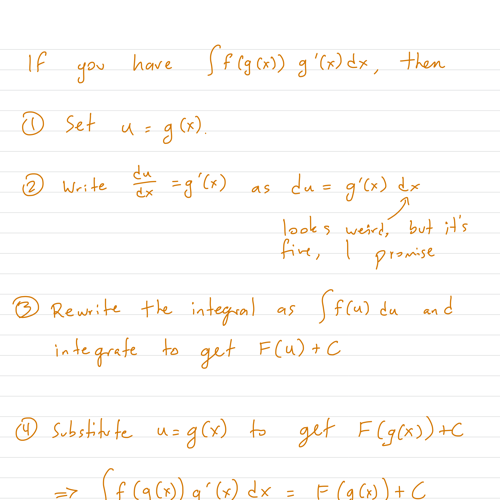 If you have ∫f(g(x)) g'(x)dx, then
① Set u = g(x).
② Write du/dx = g'(x) as du = g'(x) dx
looks weird, but it's
fine, I promise
③ Rewrite the integral as ∫f(u) du and
integrate to get F(u) + C
④ Substitute u = g(x) to get F(g(x)) + C
⇒ ∫f(g(x)) g'(x) dx = F(g(x)) + C